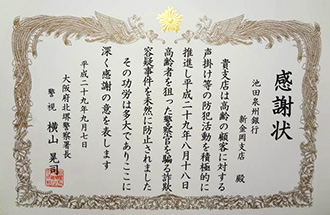 感謝状
池田泉州銀行
新金岡支店 殿
貴支店は高齢の顧客に対する
声掛け等の防犯活動を積極的に
推進し平成二十九年八月十八日
高齢者を狙った警察官を騙る詐欺
容疑事件を未然に防止されました
その功労は多大でありここに
深く感謝の意を表します
平成二十九年九月七日
大阪府北堺警察署長
警視 横山晃司